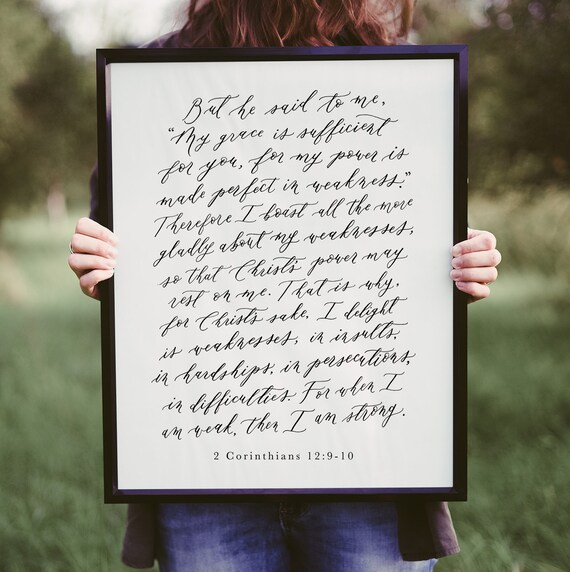 But he said to me,
"My grace is sufficient
for you, for my power is
made perfect in weakness."
Therefore I boast all the more
gladly about my weaknesses,
so that Christ's power may
rest on me. That is why,
for Christ's sake, I delight
is weaknesses, in insults,
in hardships, in persecutions,
in difficulties. For when I
am weak, then I am strong.
2 Corinthians 12:9-10